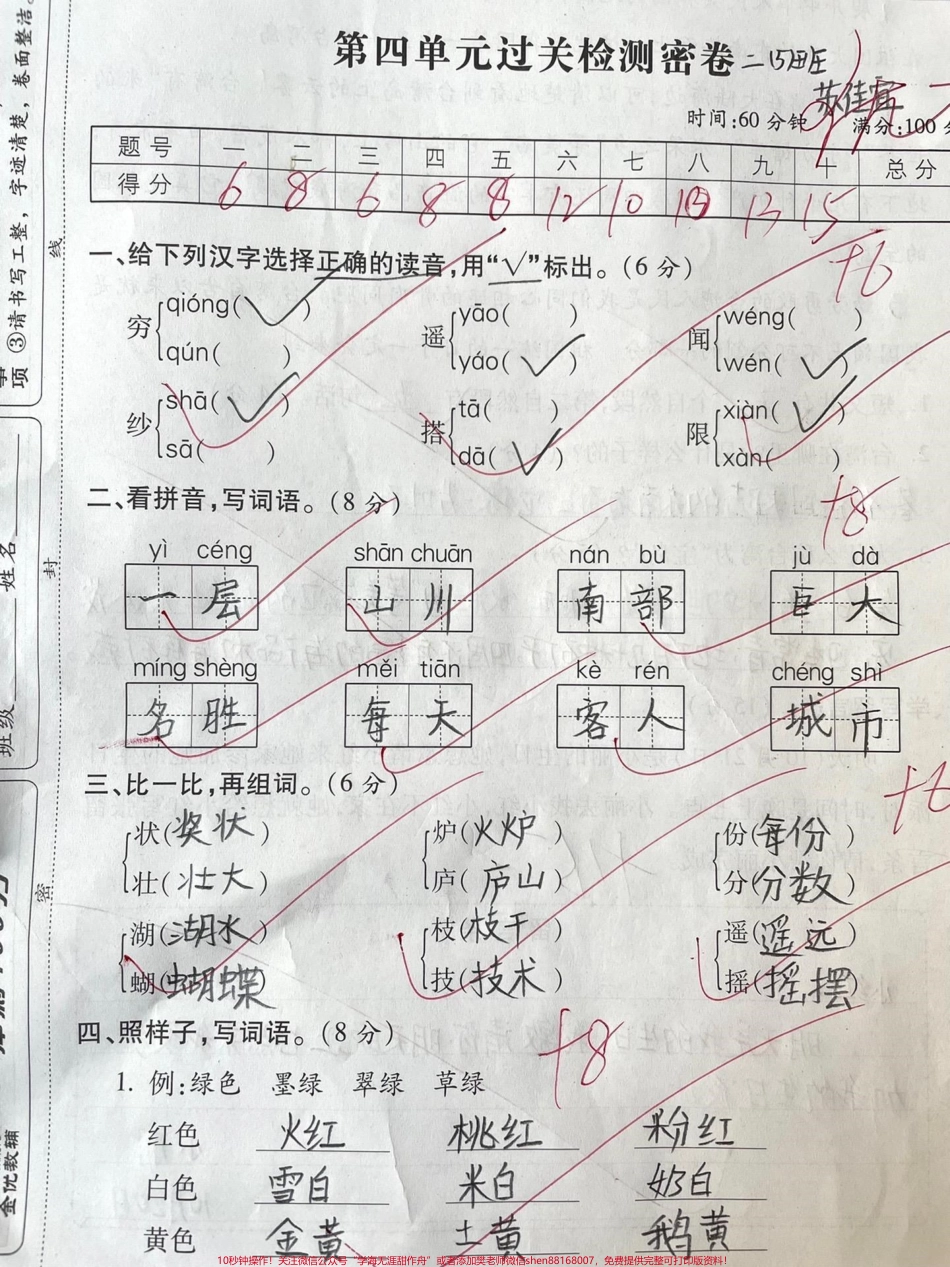 第四单元过关检测密卷
二(5)班
苏佳宜
时间:60分钟 满分:100分
题号 一 二 三 四 五 六 七 八 九 十 总分
得分 6 8 6 8 8 12 10 13 15
一、给下列汉字选择正确的读音,用“√”标出。(6分)
+6
穷 qióng(√) qún( )
遥 yāo( ) yáo(√)
闻 wéng( ) wén(√)
纱 shā(√) sā( )
搭 tā( ) dā(√)
限 xiàn(√) xàn( )
二、看拼音,写词语。(8分)
+8
yì céng shān chuān nán bù jù dà
一层 山川 南部 巨大
míng shèng měi tiān kè rén chéng shì
名胜 每天 客人 城市
三、比一比,再组词。(6分)
+6
状(奖状) 炉(火炉) 份(每份)
壮(壮大) 庐(庐山) 分(分数)
湖(湖水) 枝(枝干) 遥(遥远)
蝴(蝴蝶) 技(技术) 摇(摇摆)
四、照样子,写词语。(8分)
+8
1. 例:绿色 墨绿 翠绿 草绿
红色 火红 桃红 粉红
白色 雪白 米白 奶白
黄色 金黄 土黄 鹅黄
③请书写工整,字迹清楚,卷面整洁。
项
线
封
密
姓名
班级
金优教辅
10秒钟操作!关注微信公众号“学海无涯甜作舟”或者添加樊老师微信shen88168007,免费提供完整可打印版资料!